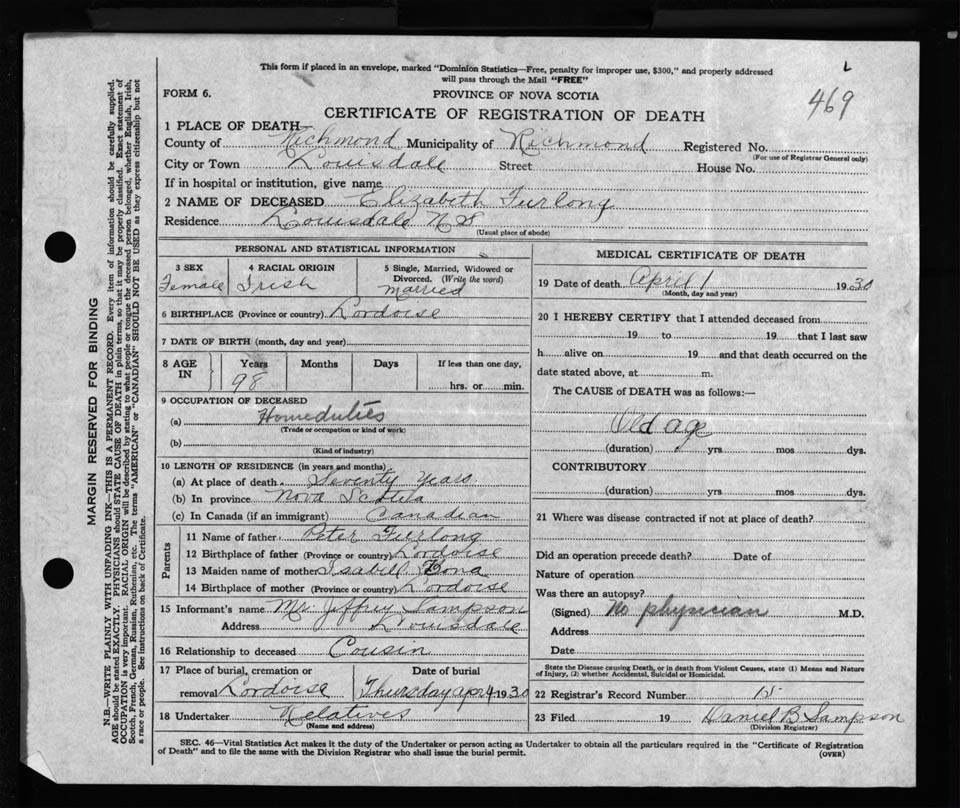 This form if placed in an envelope, marked "Dominion Statistics—Free, penalty for improper use, $300," and properly addressed
will pass through the Mail "FREE"
L
469
FORM 6.
PROVINCE OF NOVA SCOTIA
CERTIFICATE OF REGISTRATION OF DEATH
1 PLACE OF DEATH—
County of Richmond Municipality of Richmond Registered No.
(For use of Registrar General only)
City or Town Louisdale Street House No.
If in hospital or institution, give name
2 NAME OF DECEASED Elizabeth Furlong
Residence Louisdale N S
(Usual place of abode)
PERSONAL AND STATISTICAL INFORMATION
3 SEX 4 RACIAL ORIGIN 5 Single, Married, Widowed or
Divorced. (Write the word)
Female Irish married
6 BIRTHPLACE (Province or country) Lordoise
7 DATE OF BIRTH (month, day and year)
8 AGE IN Years Months Days If less than one day,
98 hrs. or min.
9 OCCUPATION OF DECEASED
(a) Homeduties
(Trade or occupation or kind of work)
(b)
(Kind of industry)
10 LENGTH OF RESIDENCE (in years and months)
(a) At place of death Seventy Years
(b) In province Nova Scotia
(c) In Canada (if an immigrant) Canadian
Parents
11 Name of father Peter Furlong
12 Birthplace of father (Province or country) Lordoise
13 Maiden name of mother Isabell Bona
14 Birthplace of mother (Province or country) Lordoise
15 Informant's name Mr. Jeffrey Sampson
Address Louisdale
16 Relationship to deceased Cousin
17 Place of burial, cremation or Date of burial
removal Lordoise Thursday apr 4 1930
18 Undertaker Relatives
(Name and address)
MEDICAL CERTIFICATE OF DEATH
19 Date of death April 1 1930
(Month, day and year)
20 I HEREBY CERTIFY that I attended deceased from
19 to 19 that I last saw
h alive on 19 and that death occurred on the
date stated above, at m.
The CAUSE of DEATH was as follows:—
Old age
(duration) yrs. mos. dys.
CONTRIBUTORY
(duration) yrs. mos. dys.
21 Where was disease contracted if not at place of death?
Did an operation precede death? Date of
Nature of operation
Was there an autopsy?
(Signed) No physician M.D.
Address
Date
State the Disease causing Death, or in death from Violent Causes, state (1) Means and Nature
of Injury, (2) whether Accidental, Suicidal or Homicidal.
22 Registrar's Record Number 15
23 Filed 19 Daniel B Sampson
(Division Registrar)
SEC. 46—Vital Statistics Act makes it the duty of the Undertaker or person acting as Undertaker to obtain all the particulars required in the "Certificate of Registration
of Death" and to file the same with the Division Registrar who shall issue the burial permit.
(OVER)
MARGIN RESERVED FOR BINDING
N.B.—WRITE PLAINLY WITH UNFADING INK—THIS IS A PERMANENT RECORD. Every item of information should be carefully supplied.
AGE should be stated EXACTLY. PHYSICIANS should STATE CAUSE OF DEATH in plain terms, so that it may be properly classified. Exact statement of
OCCUPATION is very important. RACIAL ORIGIN will be described by stating to what people or tongue the deceased person belonged, whether English, Irish,
Scotch, French, German, Russian, Ruthenian, etc. The terms "AMERICAN" or "CANADIAN" SHOULD NOT BE USED as they express citizenship but not
a race or people. See instructions on back of Certificate.